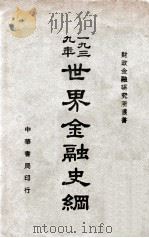 財政金融研究所叢書
一九三九年世界金融史綱
中華書局印行